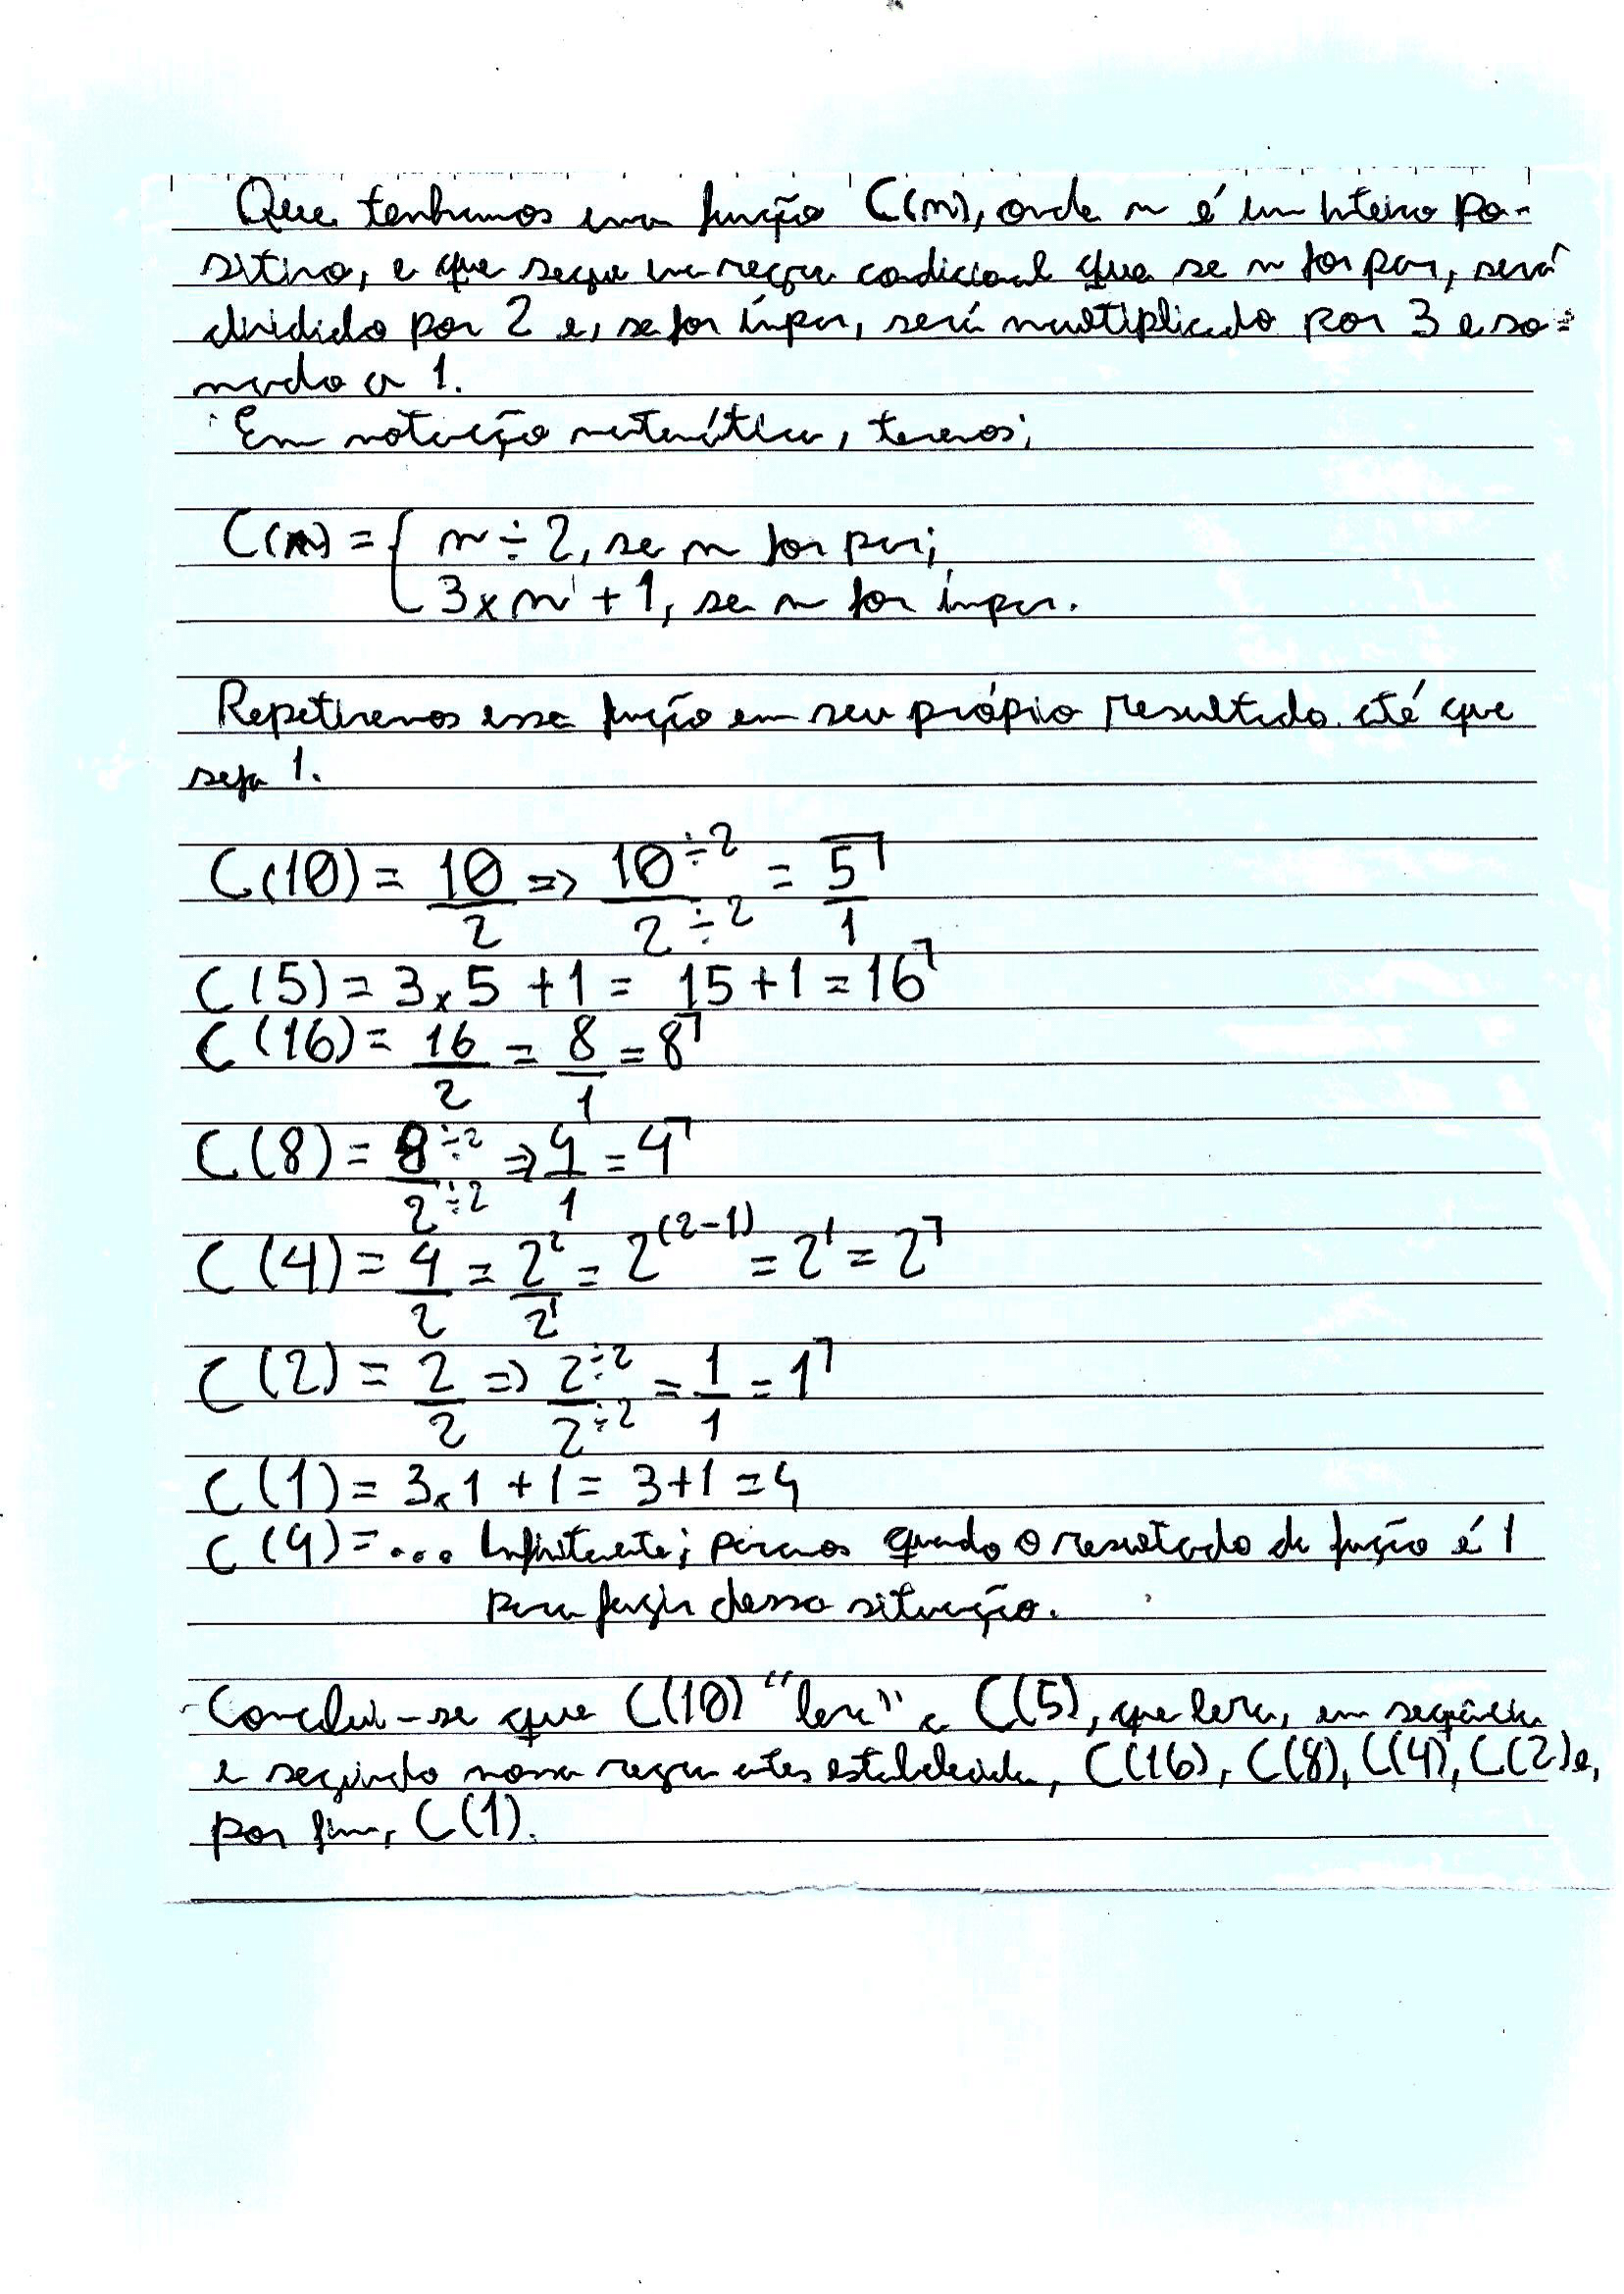 Que tenhamos uma função C(n), onde n é um inteiro po-
sitivo, e que segue uma regra condicional que se n for par, será
dividido por 2 e, se for ímpar, será multiplicado por 3 e so-
mado a 1.
Em notação matemática, temos:
C(n) = { n ÷ 2, se n for par;
3 x n + 1, se n for ímpar.
Repetiremos essa função em seu própio resultado até que
seja 1.
C(10) = 10/2 => 10÷2/2÷2 = 5/1
C(5) = 3 x 5 + 1 = 15 + 1 = 16
C(16) = 16/2 = 8/1 = 8
C(8) = 8÷2/2÷2 => 4/1 = 4
C(4) = 4/2 = 2²/2¹ = 2⁽²⁻¹⁾ = 2¹ = 2
C(2) = 2/2 => 2÷2/2÷2 = 1/1 = 1
C(1) = 3x1 + 1 = 3+1 = 4
C(4) = ... Infinitamente; paramos quando o resultado da função é 1
para fugir dessa situação.
Conclui-se que C(10) "leva" a C(5), que leva, em sequência
e seguindo nossa regra antes estabelecida, C(16), C(8), C(4), C(2) e,
por fim, C(1).